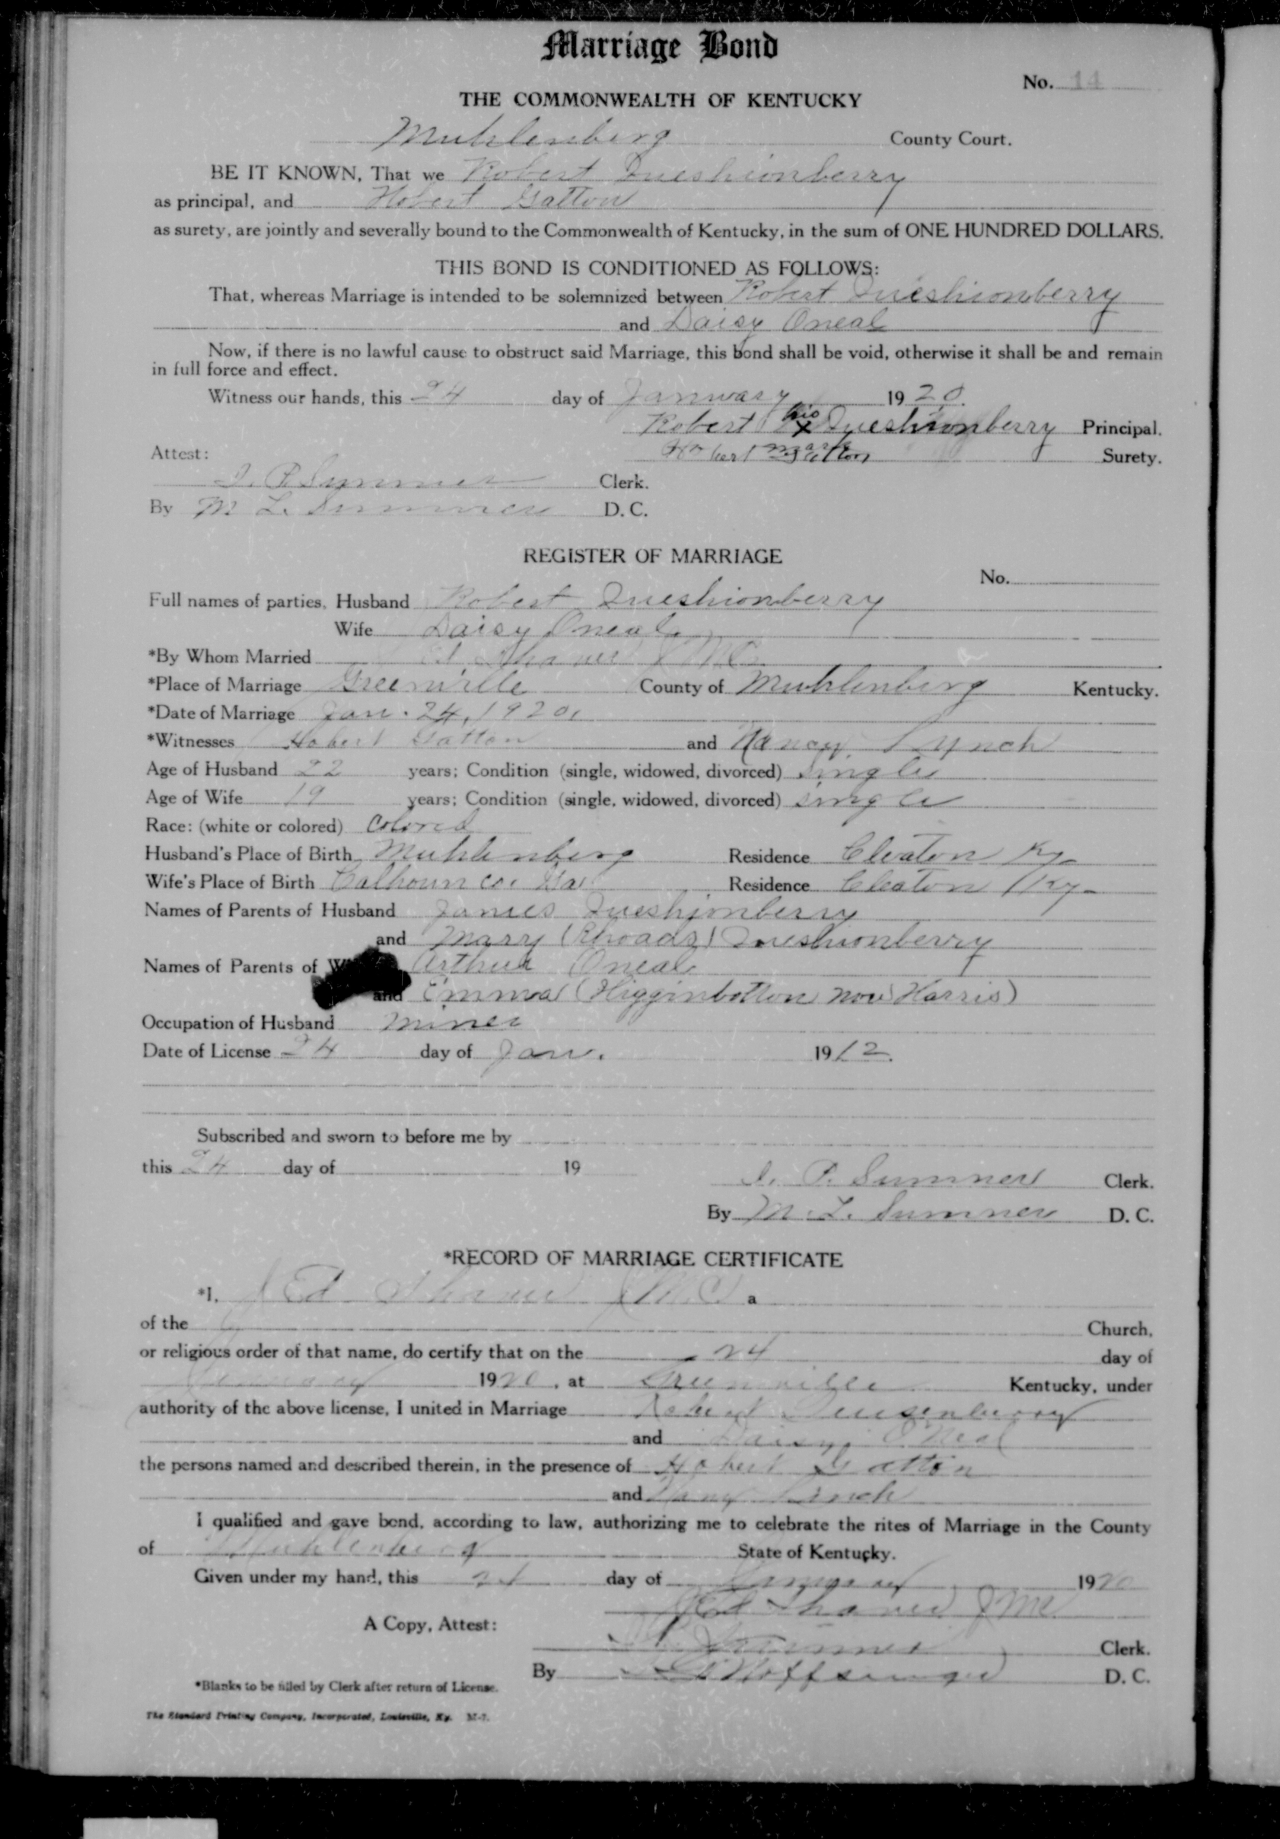 Marriage Bond
No. 14
THE COMMONWEALTH OF KENTUCKY
Muhlenberg County Court.
BE IT KNOWN, That we Robert Queshionberry
as principal, and Hobert Gatton
as surety, are jointly and severally bound to the Commonwealth of Kentucky, in the sum of ONE HUNDRED DOLLARS.
THIS BOND IS CONDITIONED AS FOLLOWS:
That, whereas Marriage is intended to be solemnized between Robert Queshionberry
and Daisy Oneal
Now, if there is no lawful cause to obstruct said Marriage, this bond shall be void, otherwise it shall be and remain
in full force and effect.
Witness our hands, this 24 day of January 1920.
Robert his x mark Queshionberry Principal.
Attest: Hobert Gatton Surety.
I. P. Summer Clerk.
By M L. Summer D. C.
REGISTER OF MARRIAGE
No.
Full names of parties, Husband Robert Queshionberry
Wife Daisy Oneal
*By Whom Married J Ed Shaver JMC
*Place of Marriage Greenville County of Muhlenberg Kentucky.
*Date of Marriage Jan. 24, 1920,
*Witnesses Hobert Gatton and Nancy Lynch
Age of Husband 22 years; Condition (single, widowed, divorced) Single
Age of Wife 19 years; Condition (single, widowed, divorced) single
Race: (white or colored) Colored
Husband's Place of Birth Muhlenberg Residence Cleaton Ky
Wife's Place of Birth Calhoun Co. Ga Residence Cleaton Ky
Names of Parents of Husband James Queshionberry
and Mary (Rhoads) Queshionberry
Names of Parents of Arthur Oneal
and Emma (Higginbotton now Harris)
Occupation of Husband Miner
Date of License 24 day of Jan. 1912.
Subscribed and sworn to before me by
this 24 day of 19
I. P. Summer Clerk.
By M. L. Summer D. C.
*RECORD OF MARRIAGE CERTIFICATE
*I, J Ed Shaver JMC a
of the Church,
or religious order of that name, do certify that on the 24 day of
January 1920, at Greenville Kentucky, under
authority of the above license, I united in Marriage Robert Queisenberry
and Daisy O'Neal
the persons named and described therein, in the presence of Hobert Gatton
and Nancy Linch
I qualified and gave bond, according to law, authorizing me to celebrate the rites of Marriage in the County
of Muhlenberg State of Kentucky.
Given under my hand, this 24 day of January 1920
J Ed Shaver JMC
A Copy, Attest:
Summer Clerk.
By Hoffsinger D. C.
*Blanks to be filled by Clerk after return of License.
The Standard Printing Company, Incorporated, Louisville, Ky. M-7.